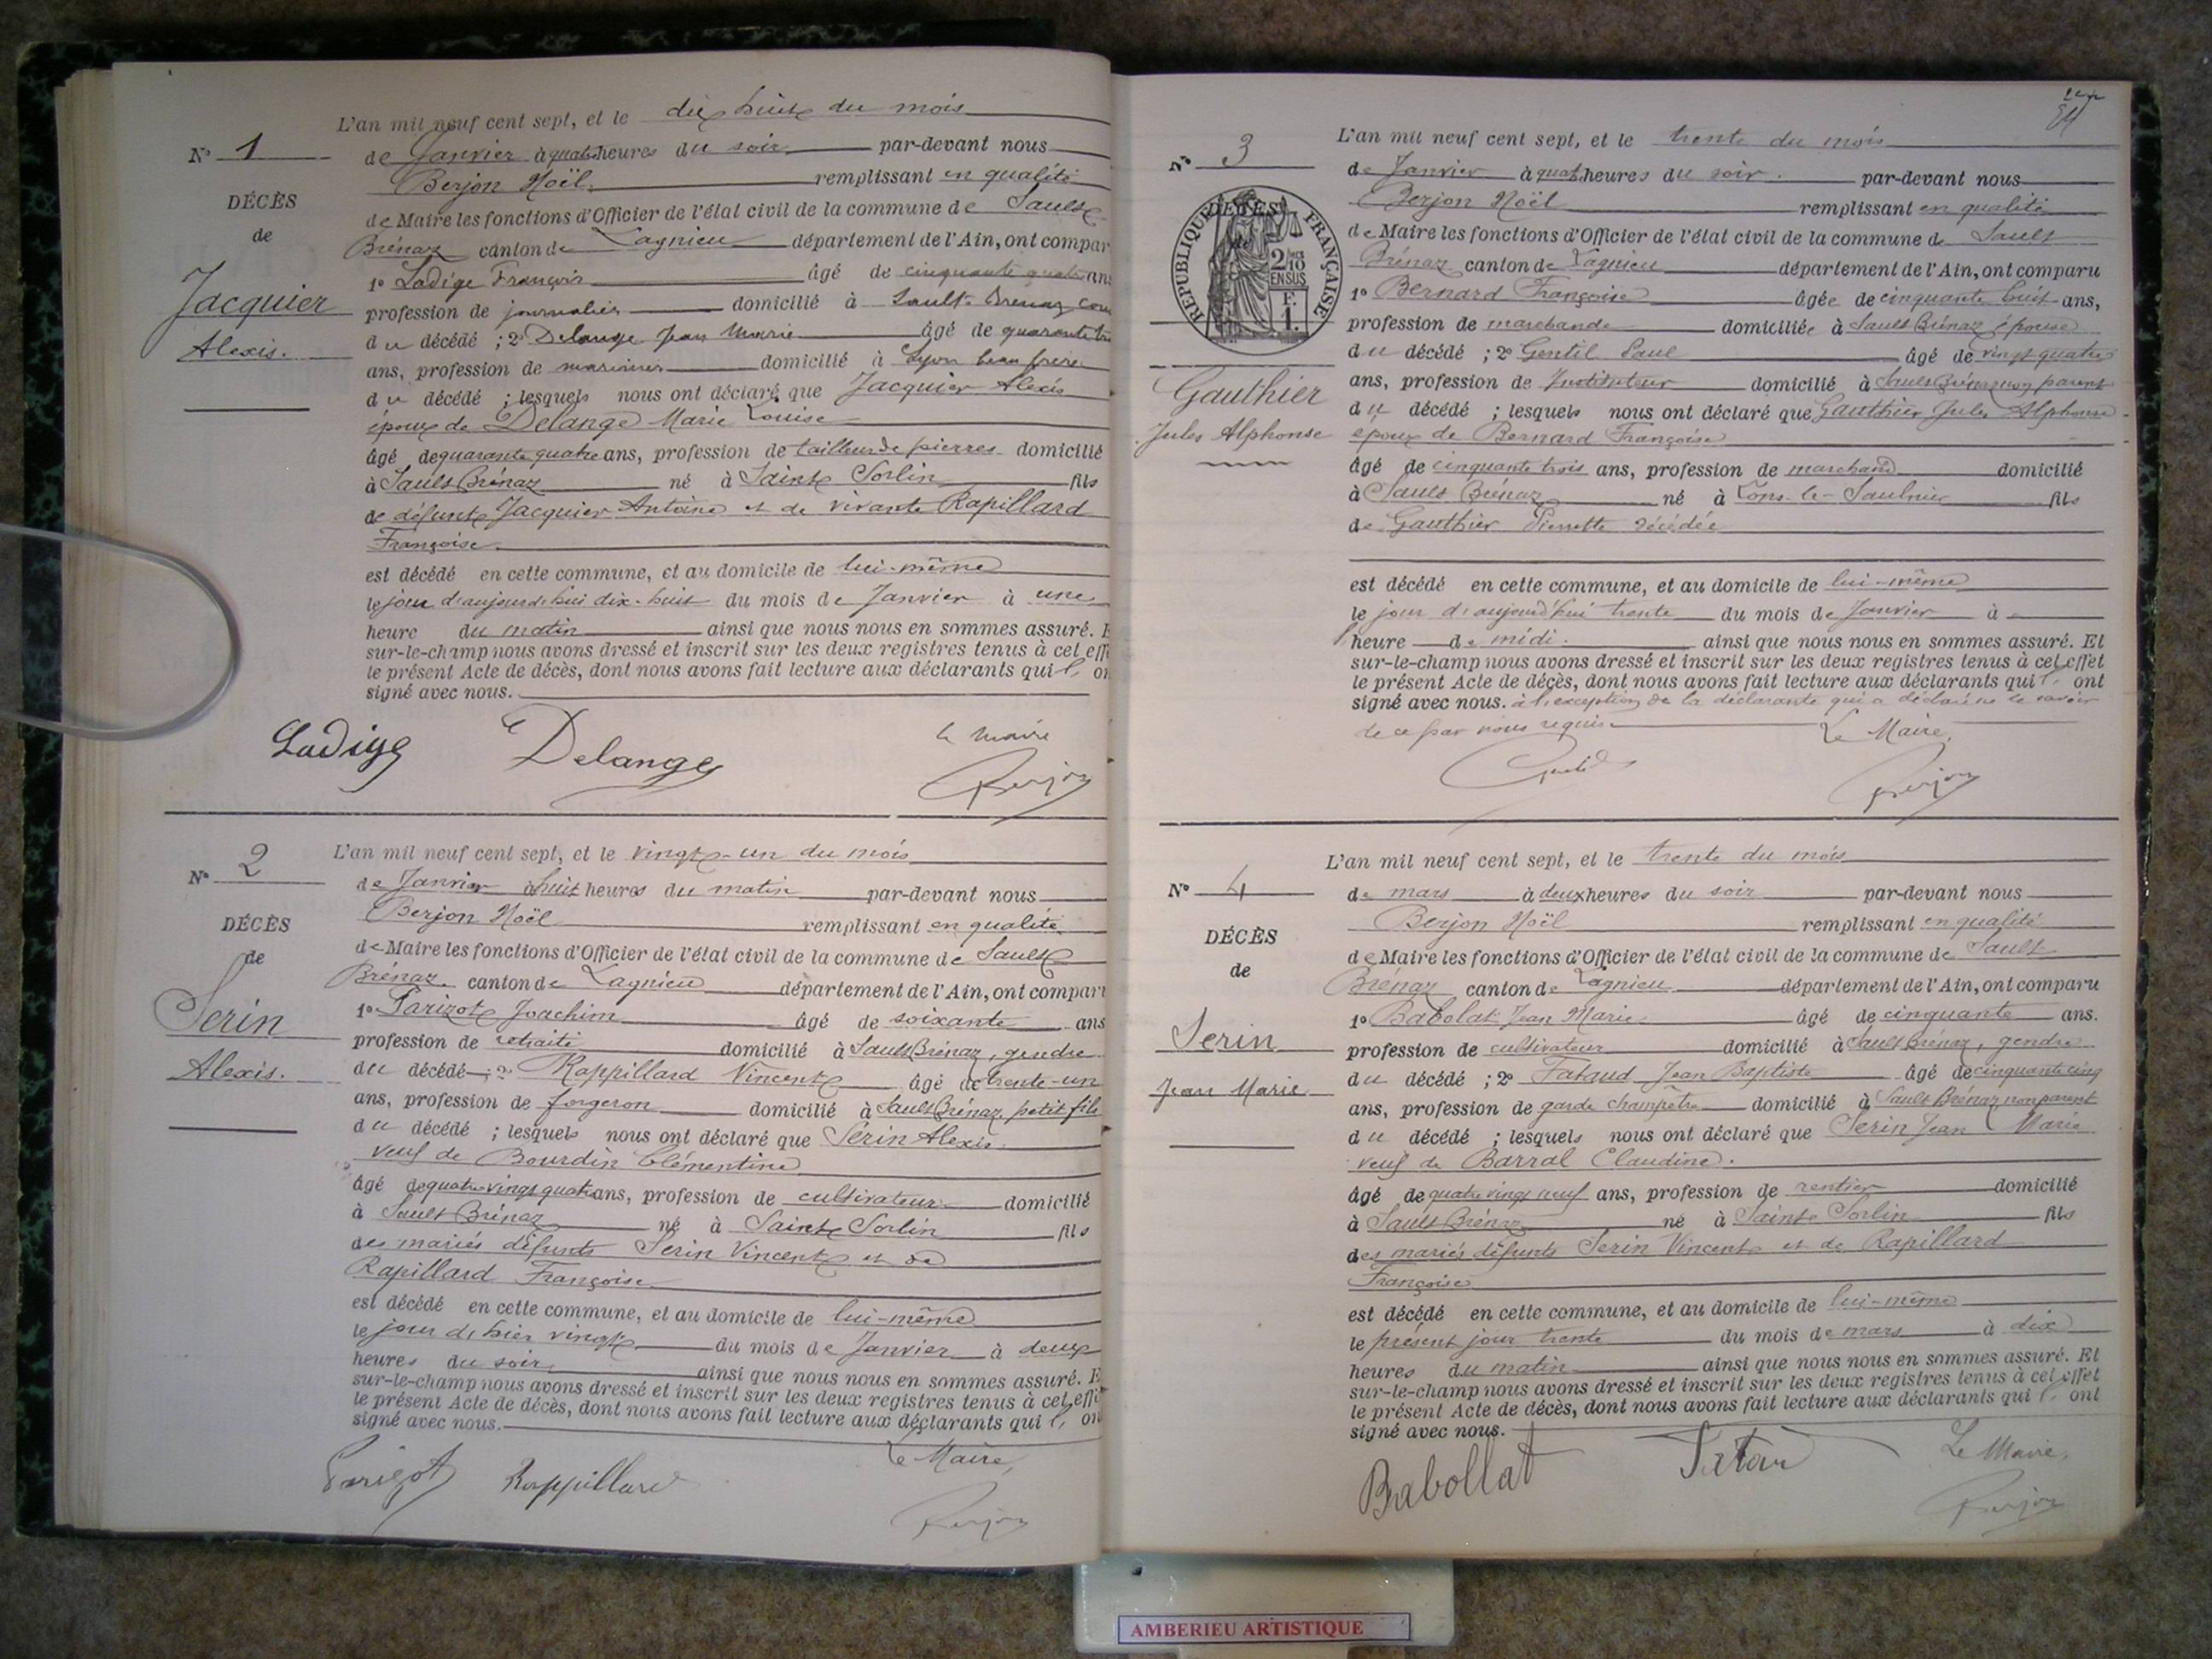 L'an mil neuf cent sept, et le dix huit du mois
N° 1
de Janvier à quatre heures du soir par-devant nous
Berjon Noël remplissant en qualité
DÉCÈS
de Maire les fonctions d'Officier de l'état civil de la commune de Sault
de
Brénaz canton de Lagnieu département de l'Ain, ont compar
1° Ladige François âgé de cinquante quatre ans
Jacquier
profession de journalier domicilié à Sault-Brénaz cou
Alexis.
du décédé ; 2° Delange Jean Marie âgé de quarante
ans, profession de marinier domicilié à Lyon beau frère
du décédé ; lesquels nous ont déclaré que Jacquier Alexis
époux de Delange Marie Louise
âgé de quarante quatre ans, profession de tailleur de pierres domicilié
à Sault Brénaz né à Saint Sorlin fils
de défunt Jacquier Antoine et de vivante Rapillard
Françoise
est décédé en cette commune, et au domicile de lui-même
le jour d'aujourd'hui dix-huit du mois de Janvier à une
heure du matin ainsi que nous nous en sommes assuré. E
sur-le-champ nous avons dressé et inscrit sur les deux registres tenus à cet effe
le présent Acte de décès, dont nous avons fait lecture aux déclarants qui l' on
signé avec nous.
Ladige Delange le maire
Berjon
L'an mil neuf cent sept, et le vingt-un du mois
N° 2
de Janvier à huit heures du matin par-devant nous
Berjon Noël remplissant en qualité
DÉCÈS
de Maire les fonctions d'Officier de l'état civil de la commune de Sault
de
Brénaz canton de Lagnieu département de l'Ain, ont compar
1° Parizot Joachim âgé de soixante ans
Serin
profession de retraité domicilié à Sault Brénaz, gendre
Alexis.
du décédé ; 2° Rappillard Vincent âgé de trente-un
ans, profession de forgeron domicilié à Sault Brénaz petit fils
du décédé ; lesquels nous ont déclaré que Serin Alexis
veuf de Bourdin Clémentine
âgé de quatre vingt quatre ans, profession de cultivateur domicilié
à Sault Brénaz né à Saint Sorlin fils
des mariés défunts Serin Vincent et de
Rapillard Françoise
est décédé en cette commune, et au domicile de lui-même
le jour d'hier vingt du mois de Janvier à deux
heures du soir ainsi que nous nous en sommes assuré. E
sur-le-champ nous avons dressé et inscrit sur les deux registres tenus à cet effe
le présent Acte de décès, dont nous avons fait lecture aux déclarants qui l' on
signé avec nous.
Le Maire,
Parizot Rappillard
Berjon
L'an mil neuf cent sept, et le trente du mois
N° 3
de Janvier à quatre heures du soir. par-devant nous
Berjon Noël remplissant en qualité
DÉCÈS
RÉPUBLIQUE FRANÇAISE
2 DÉCES 10
EN SUS
F.
1.
de Maire les fonctions d'Officier de l'état civil de la commune de Sault
Brénaz canton de Lagnieu département de l'Ain, ont comparu
1° Bernard Françoise âgée de cinquante huit ans,
profession de marchande domiciliée à Sault Brénaz épouse
du décédé ; 2° Gentil Paul âgé de vingt quatre
ans, profession de Instituteur domicilié à Sault Brénaz non parent
Gauthier
du décédé ; lesquels nous ont déclaré que Gauthier Jules Alphonse
Jules Alphonse
époux de Bernard Françoise
âgé de cinquante trois ans, profession de marchand domicilié
à Sault Brénaz né à Lons-le-Saulnier fils
de Gauthier Pierrette décédée
est décédé en cette commune, et au domicile de lui-même
le jour d'aujourd'hui trente du mois de Janvier à
heure de midi. ainsi que nous nous en sommes assuré. Et
sur-le-champ nous avons dressé et inscrit sur les deux registres tenus à cet effet
le présent Acte de décès, dont nous avons fait lecture aux déclarants qui l' ont
signé avec nous. à l'exception de la déclarante qui a déclaré ne le savoir
de ce par nous requise
Le Maire,
Gentil
Berjon
L'an mil neuf cent sept, et le trente du mois
N° 4
de mars à deux heures du soir par-devant nous
Berjon Noël remplissant en qualité
DÉCÈS
de Maire les fonctions d'Officier de l'état civil de la commune de Sault
de
Brénaz canton de Lagnieu département de l'Ain, ont comparu
1° Babolat Jean Marie âgé de cinquante ans.
Serin
profession de cultivateur domicilié à Sault Brénaz, gendre
Jean Marie
du décédé ; 2° Jean Baptiste âgé de cinquante cinq
ans, profession de garde champêtre domicilié à Sault Brénaz non parent
du décédé ; lesquels nous ont déclaré que Serin Jean Marie
veuf de Barral Claudine.
âgé de quatre vingt neuf ans, profession de rentier domicilié
à Sault Brénaz né à Saint Sorlin fils
des mariés défunts Serin Vincent et de Rapillard
Françoise
est décédé en cette commune, et au domicile de lui-même
le présent jour trente du mois de mars à dix
heures du matin ainsi que nous nous en sommes assuré. Et
sur-le-champ nous avons dressé et inscrit sur les deux registres tenus à cet effet
le présent Acte de décès, dont nous avons fait lecture aux déclarants qui l' ont
signé avec nous.
Babollat Le Maire,
Berjon
AMBERIEU ARTISTIQUE